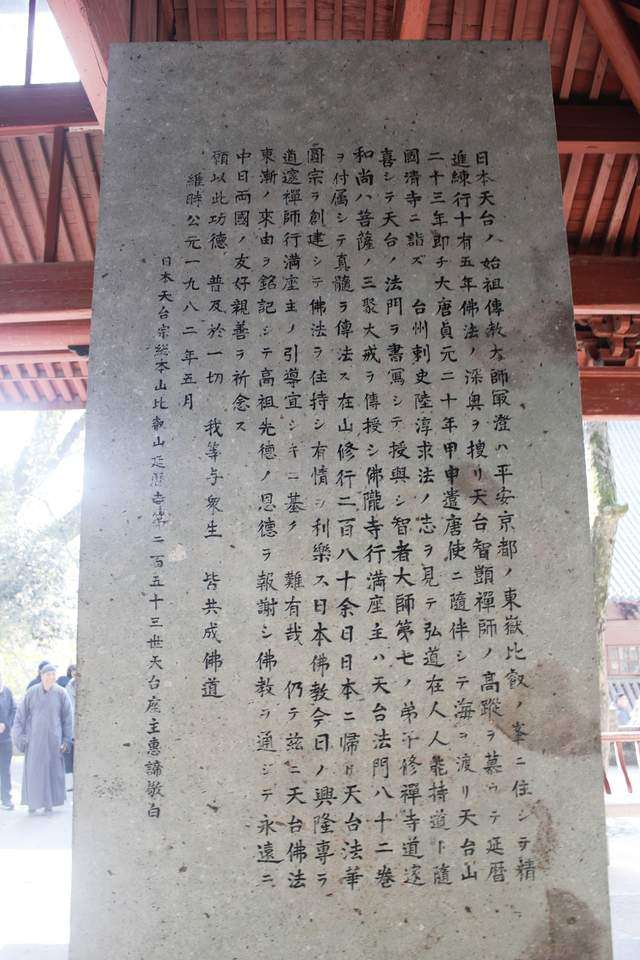 日本天台ノ始祖傳教大師最澄ハ平安京都ノ東嶽比叡ノ峯ニ住シテ精
進練行十有五年佛法ノ深奥ヲ捜リ天台智顗禅師ノ高蹤ヲ慕ウテ延暦
二十三年即チ大唐貞元二十年甲申遣唐使ニ隨伴シテ海ヲ渡リ天台山
國清寺ニ詣ズ 台州刺史陸淳求法ノ志ヲ見テ弘道在人人能持道ト隨
喜シテ天台ノ法門ヲ書寫シテ授與シ智者大師第七ノ弟子修禅寺道邃
和尚ハ菩薩ノ三聚大戒ヲ傳授シ佛隴寺行満座主ハ天台法門八十二巻
ヲ付属シテ真髓ヲ傳法ス在山修行二百八十余日日本ニ帰リ天台法華
圓宗ヲ創建シテ佛法ヲ住持シ有情ヲ利樂ス日本佛教今日ノ興隆專ラ
道邃禅師行満座主ノ引導宜シキニ基ク 難有哉 仍テ茲ニ天台佛法
東漸ノ來由ヲ銘記シテ高祖先德ノ恩德ヲ報謝シ佛教ヲ通ジテ永遠ニ
中日両國ノ友好親善ヲ祈念ス
願以此功德 普及於一切 我等与衆生 皆共成佛道
維時公元一九八二年五月
日本天台宗総本山比叡山延暦寺第二百五十三世天台座主惠諦敬白